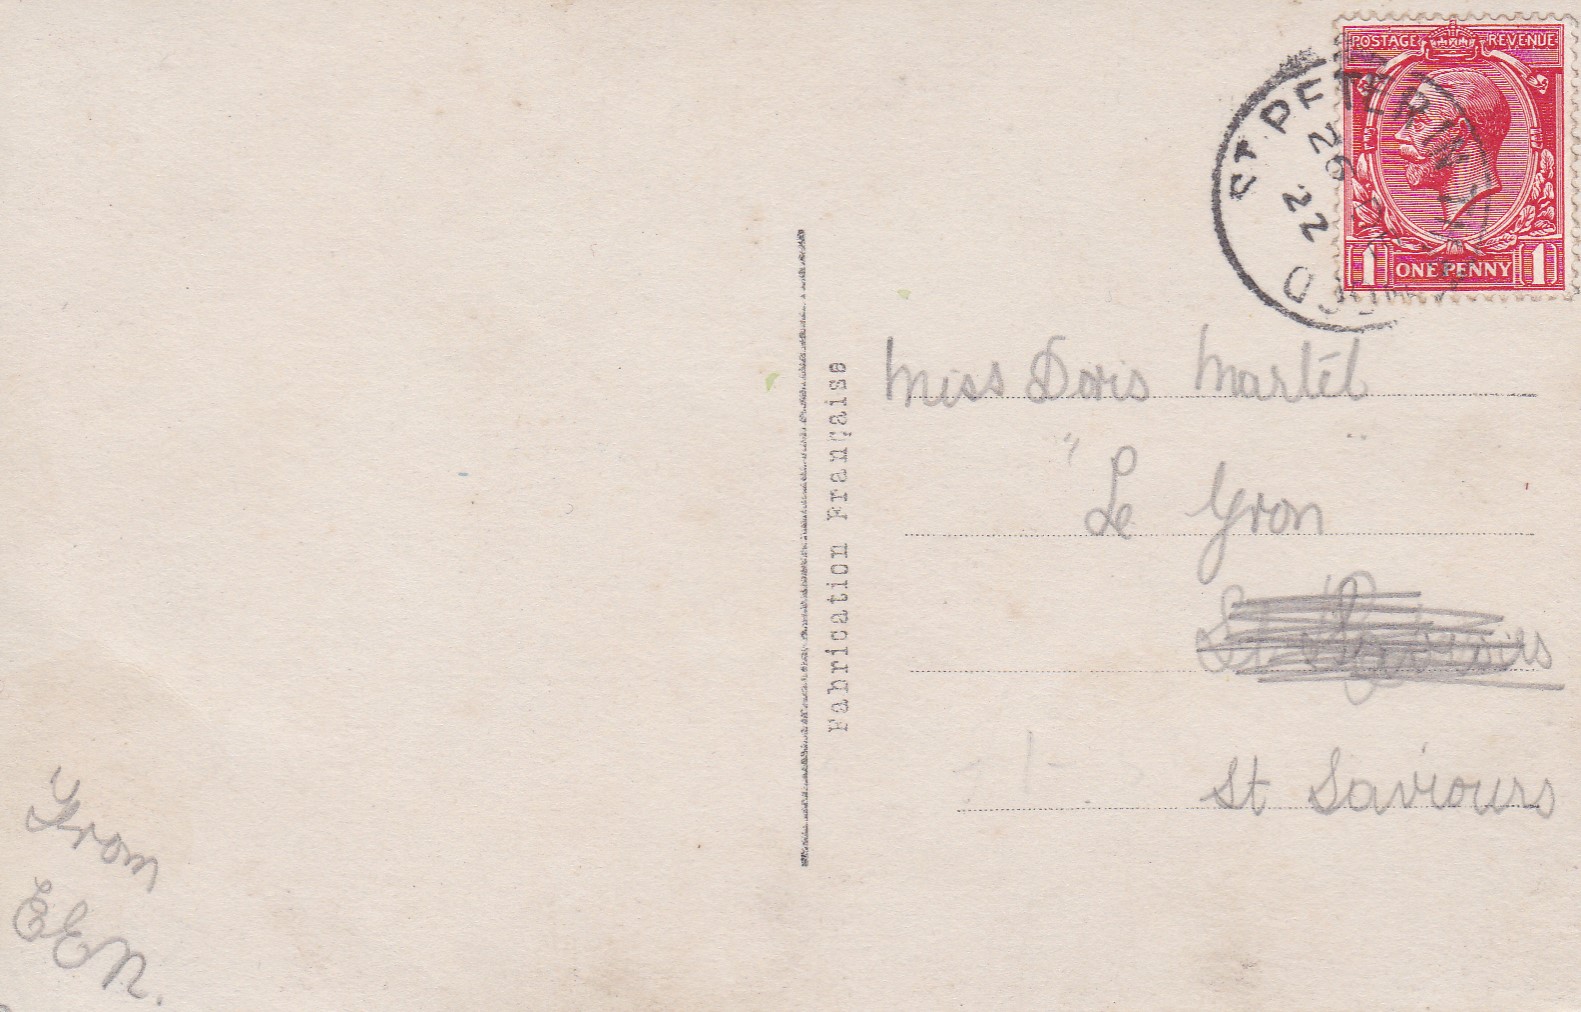 POSTAGE REVENUE
ST PETER IN
22
1 ONE PENNY 1
Miss Doris Martel
"Le Gron"
St Saviours
Fabrication Française
From
EEN.